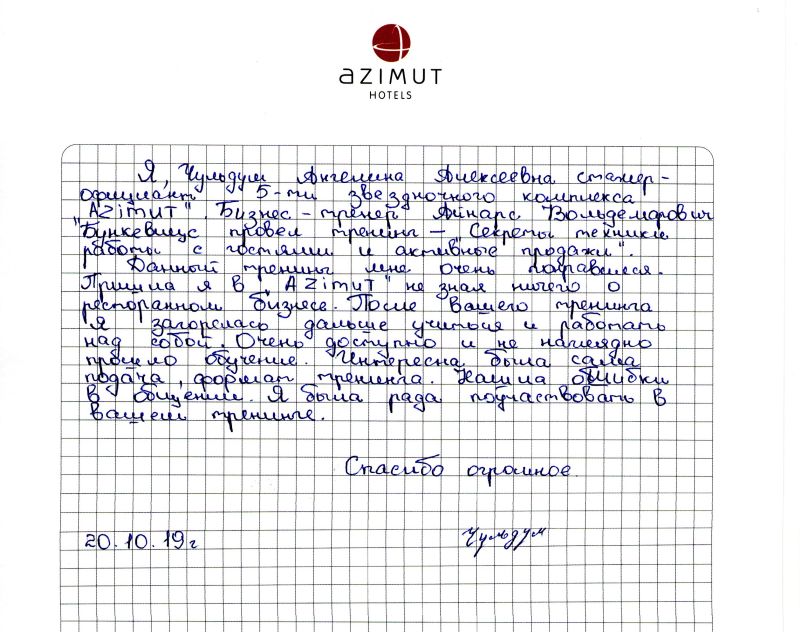 AZIMUT
HOTELS
Я, Чульдум Ангелина Алексеевна стажер-
официант 5-ти звездночного комплекса
"AZimuT". Бизнес-тренер Айнарс Вольдемарович
Бункевицус провел тренинг – "Секреты техники
работы с гостями и активные продажи".
Данный тренинг мне очень понравился.
Пришла я в "AZimuT" не зная ничего о
ресторанном бизнесе. После вашего тренинга
я загорелась дальше учиться и работать
над собой. Очень доступно и не наглядно
прошло обучение. Интересна была сама
подача, формат тренинга. Нашла ошибки
в общении. Я была рада поучаствовать в
вашем тренинге.
Спасибо огромное.
20.10.19г Чульдум